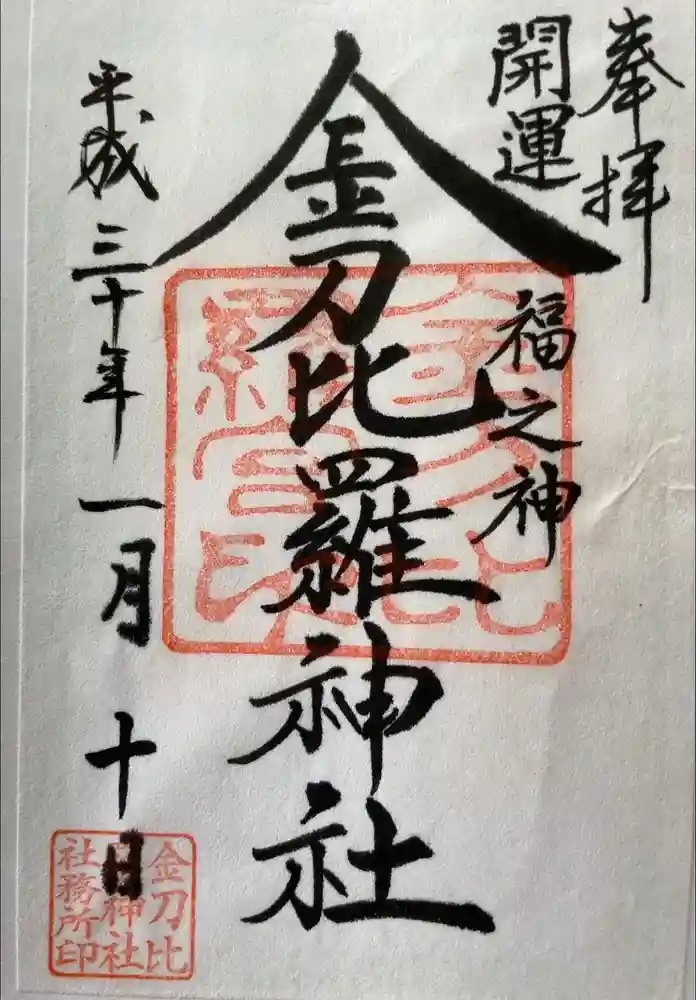 奉拝
開運
福之神
金刀比羅神社
平成三十年一月十日
金刀比
神社
社務所印